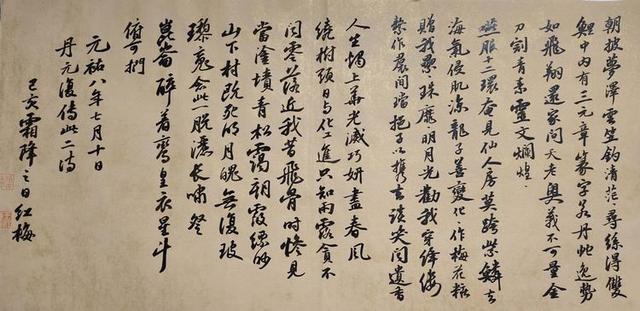 朝披夢澤雲笠釣清茫〻尋絲得雙
鯉中內有三元章篆字若丹虵逸勢
如飛翔還家問天老奧義不可量金
刀割青素靈文爛煌〻
嚥服十二環奄見仙人房莫跨紫鱗去
海氣侵肌涼龍子善變化〻作梅花粧
贈我纍〻珠靡〻明月光勸我穿絳縷
繫作裙間璫挹子以攜去談笑聞遺香
人生燭上華光滅巧妍盡春風
繞樹頭日與化工進只知雨露貪不
聞零落近我昔飛骨時慘見
當塗墳青松靄朝霞縹緲
山下村既死明月魄無復玻
瓈魂念此一脫灑長嘯祭
崑崙醉著鸞皇衣星斗
俯可捫
元祐八年七月十日
丹元復傳此二詩
己亥霜降之日紅梅